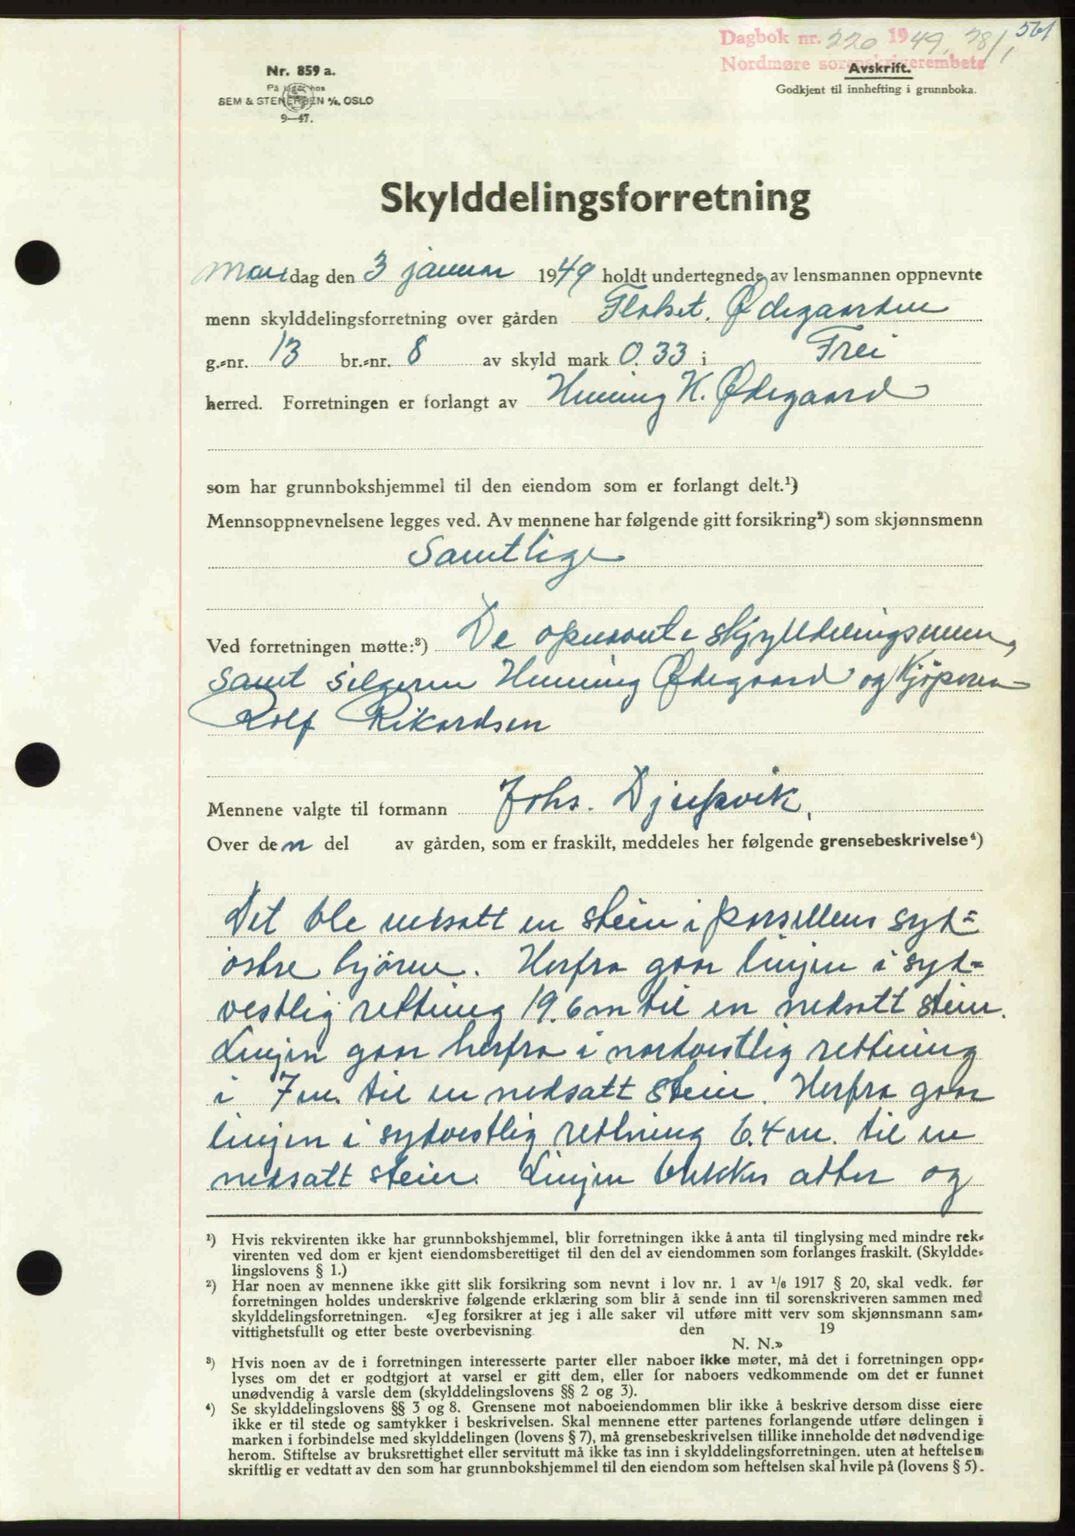 561
Dagbok nr. 220 1949, 28/1
Nordmøre sorenskriverembete
Avskrift.
Godkjent til innhefting i grunnboka.
Nr. 859 a.
På lager hos
SEM & STENERSEN A/S, OSLO
9—47.
Skylddelingsforretning
Mandag den 3 januar 1949 holdt undertegnede av lensmannen oppnevnte
menn skylddelingsforretning over gården Flatset, Ødegaarden
g.-nr. 13 br.-nr. 8 av skyld mark 0.33 i Frei
herred. Forretningen er forlangt av Henning K. Ødegaard
som har grunnbokshjemmel til den eiendom som er forlangt delt.¹)
Mennsoppnevnelsene legges ved. Av mennene har følgende gitt forsikring²) som skjønnsmenn
Samtlige
Ved forretningen møtte:³) De opnevnte skjylddelingsmenn,
samt selgeren Henning Ødegaard og kjøperen
Rolf Rikardsen
Mennene valgte til formann Johs. Djupvik,
Over den del av gården, som er fraskilt, meddeles her følgende grensebeskrivelse⁴)
Det ble nedsatt en stein i parsellens syd=
østre hjørne. Herfra gaar linjen i syd=
vestlig rettning 19.6 m til en nedsatt stein.
Linjen gaar herfra i nordvestlig rettning
i 7 m. til en nedsatt stein. Herfra gaar
linjen i sydvestlig rettning 6.4 m. til en
nedsatt stein. Linjen bukker atter og
¹) Hvis rekvirenten ikke har grunnbokshjemmel, blir forretningen ikke å anta til tinglysing med mindre rek-
virenten ved dom er kjent eiendomsberettiget til den del av eiendommen som forlanges fraskilt. (Skyldde-
lingslovens § 1.)
²) Har noen av mennene ikke gitt slik forsikring som nevnt i lov nr. 1 av 1/6 1917 § 20, skal vedk. før
forretningen holdes underskrive følgende erklæring som blir å sende inn til sorenskriveren sammen med
skylddelingsforretningen. «Jeg forsikrer at jeg i alle saker vil utføre mitt verv som skjønnsmann sam-
vittighetsfullt og etter beste overbevisning den 19
N. N.»
³) Hvis noen av de i forretningen interesserte parter eller naboer ikke møter, må det i forretningen opp-
lyses om det er godtgjort at varsel er gitt dem, eller for naboers vedkommende om det er funnet
unødvendig å varsle dem (skylddelingslovens §§ 2 og 3).
⁴) Se skylddelingslovens §§ 3 og 8. Grensene mot naboeiendommen blir ikke å beskrive dersom disse eiere
ikke er til stede og samtykker i beskrivelsen. Skal mennene etter partenes forlangende utføre delingen i
marken i forbindelse med skylddelingen (lovens § 7), må grensebeskrivelsen tillike inneholde det nødvendige
herom. Stiftelse av bruksrettighet eller servitutt må ikke tas inn i skylddelingsforretningen, uten at heftelsen
skriftlig er vedtatt av den som har grunnbokshjemmel til den eiendom som heftelsen skal hvile på (lovens § 5).